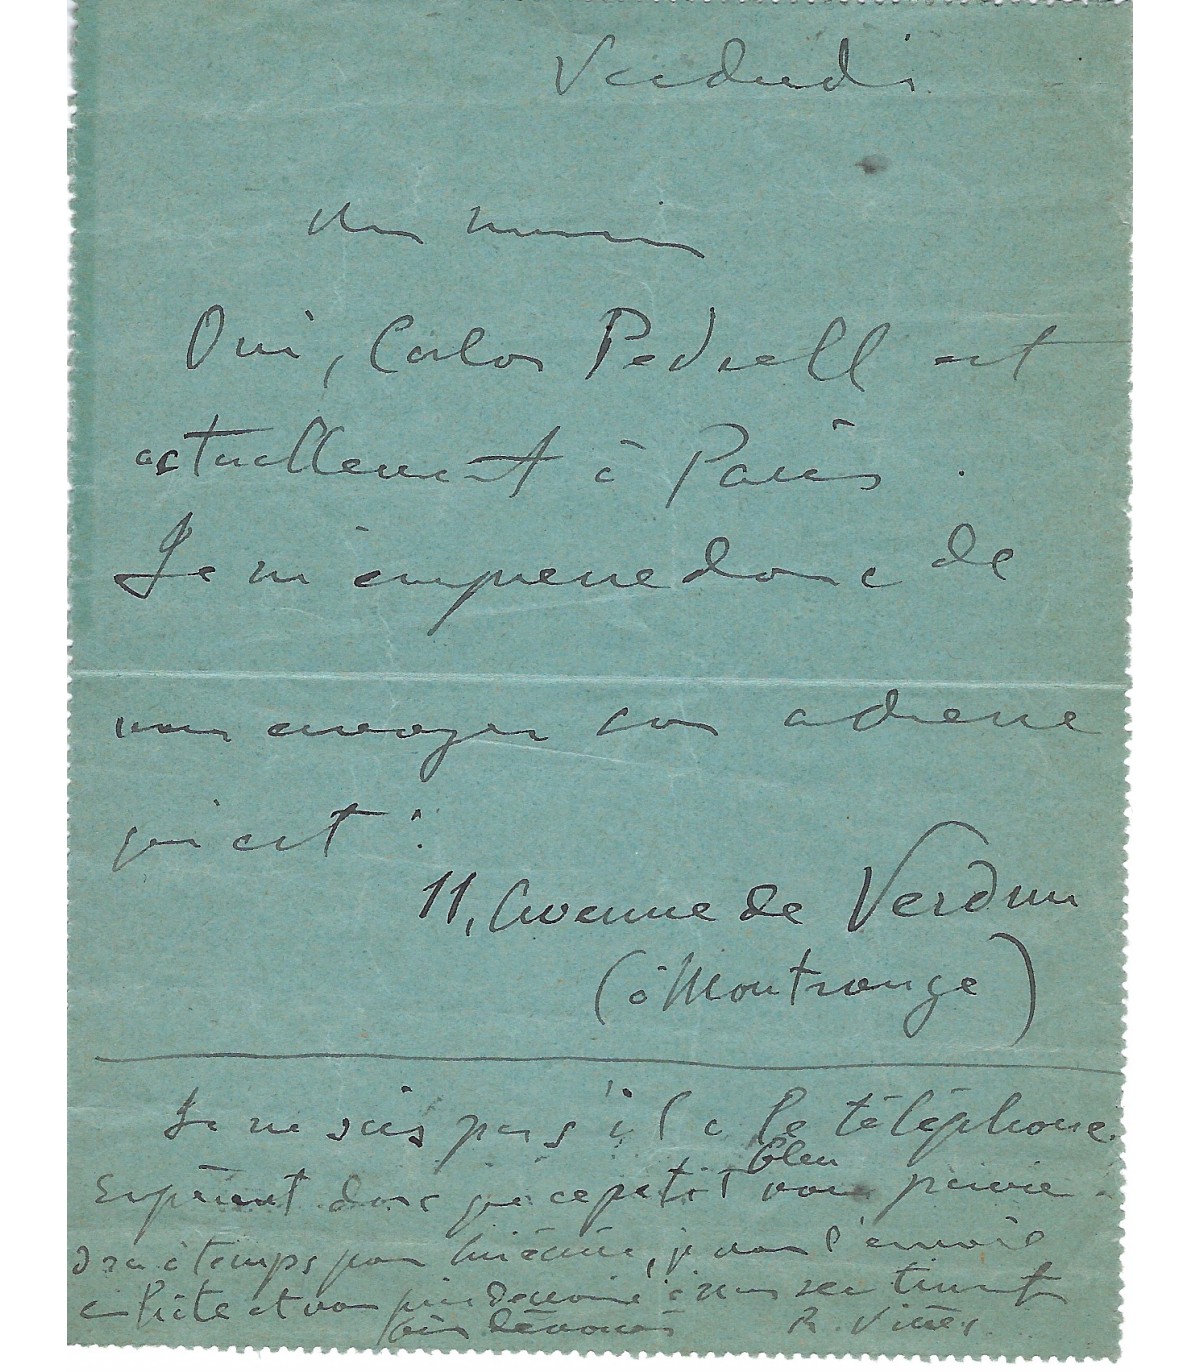 Vendredi
Cher monsieur
Oui, Carlos Pedrell est
actuellement à Paris.
Je m'empresse donc de
vous envoyer son adresse
qui est :
11, Avenue de Verdun
(à Montrouge)
Je ne sais pas s'il a le téléphone.
bleu
Espérant donc que ce petit vous parvien-
dra à temps pour , je vous l'envoie
en hâte et vous prie de croire à mes sentiments
très dévoués R. Viñes